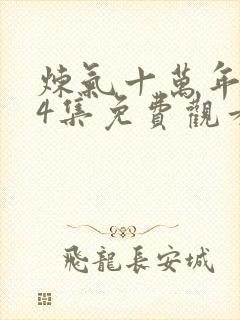 煉氣十萬年
4集免費觀
飛龍長安城